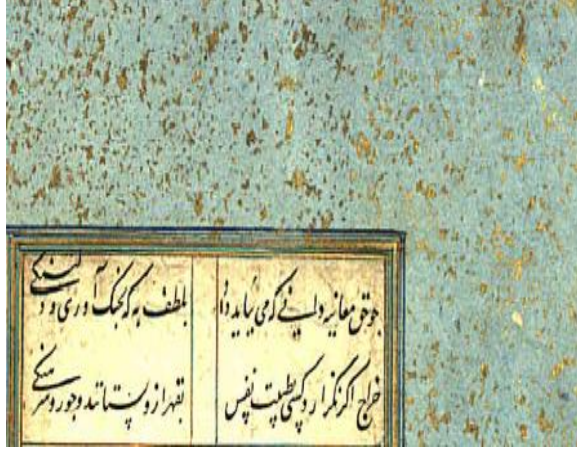 چو حق معاینه دانی که می بباید داد بلطف به که بجنگ آوری و دلتنگی
خراج اگر نگزارد کسی بطیبت نفس بقهر ازو بستانند و جور و سرهنگی